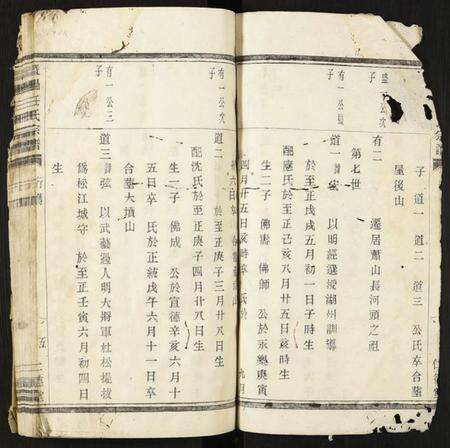 盛一公次
子
子 道一 道二 道三 公氏卒合墓
屋後山
有二 遷居蕭山長河頭之祖
第七世
有一公長
子
道一 諱 以明經選授湖州訓導
於至正戊戌五月初一日子時生
配應氏於至正己亥八月廿五日亥時生
生二子 佛壽 佛師 公於永樂庚寅
四月廿五日亥時卒 氏於
六日卒
有一公次
子
道二 於至正庚子三月廿八日生
配沈氏於至正庚子四月廿八日生
生一子 佛成 公於宣德辛亥六月十
五日卒 氏於正統戊午六月十一日卒
合墓大墳山
有一公三
子
道三 諱弦 以武藝過人明大將軍杜松提拔
爲松江城守 於至正壬寅六月初四日
生